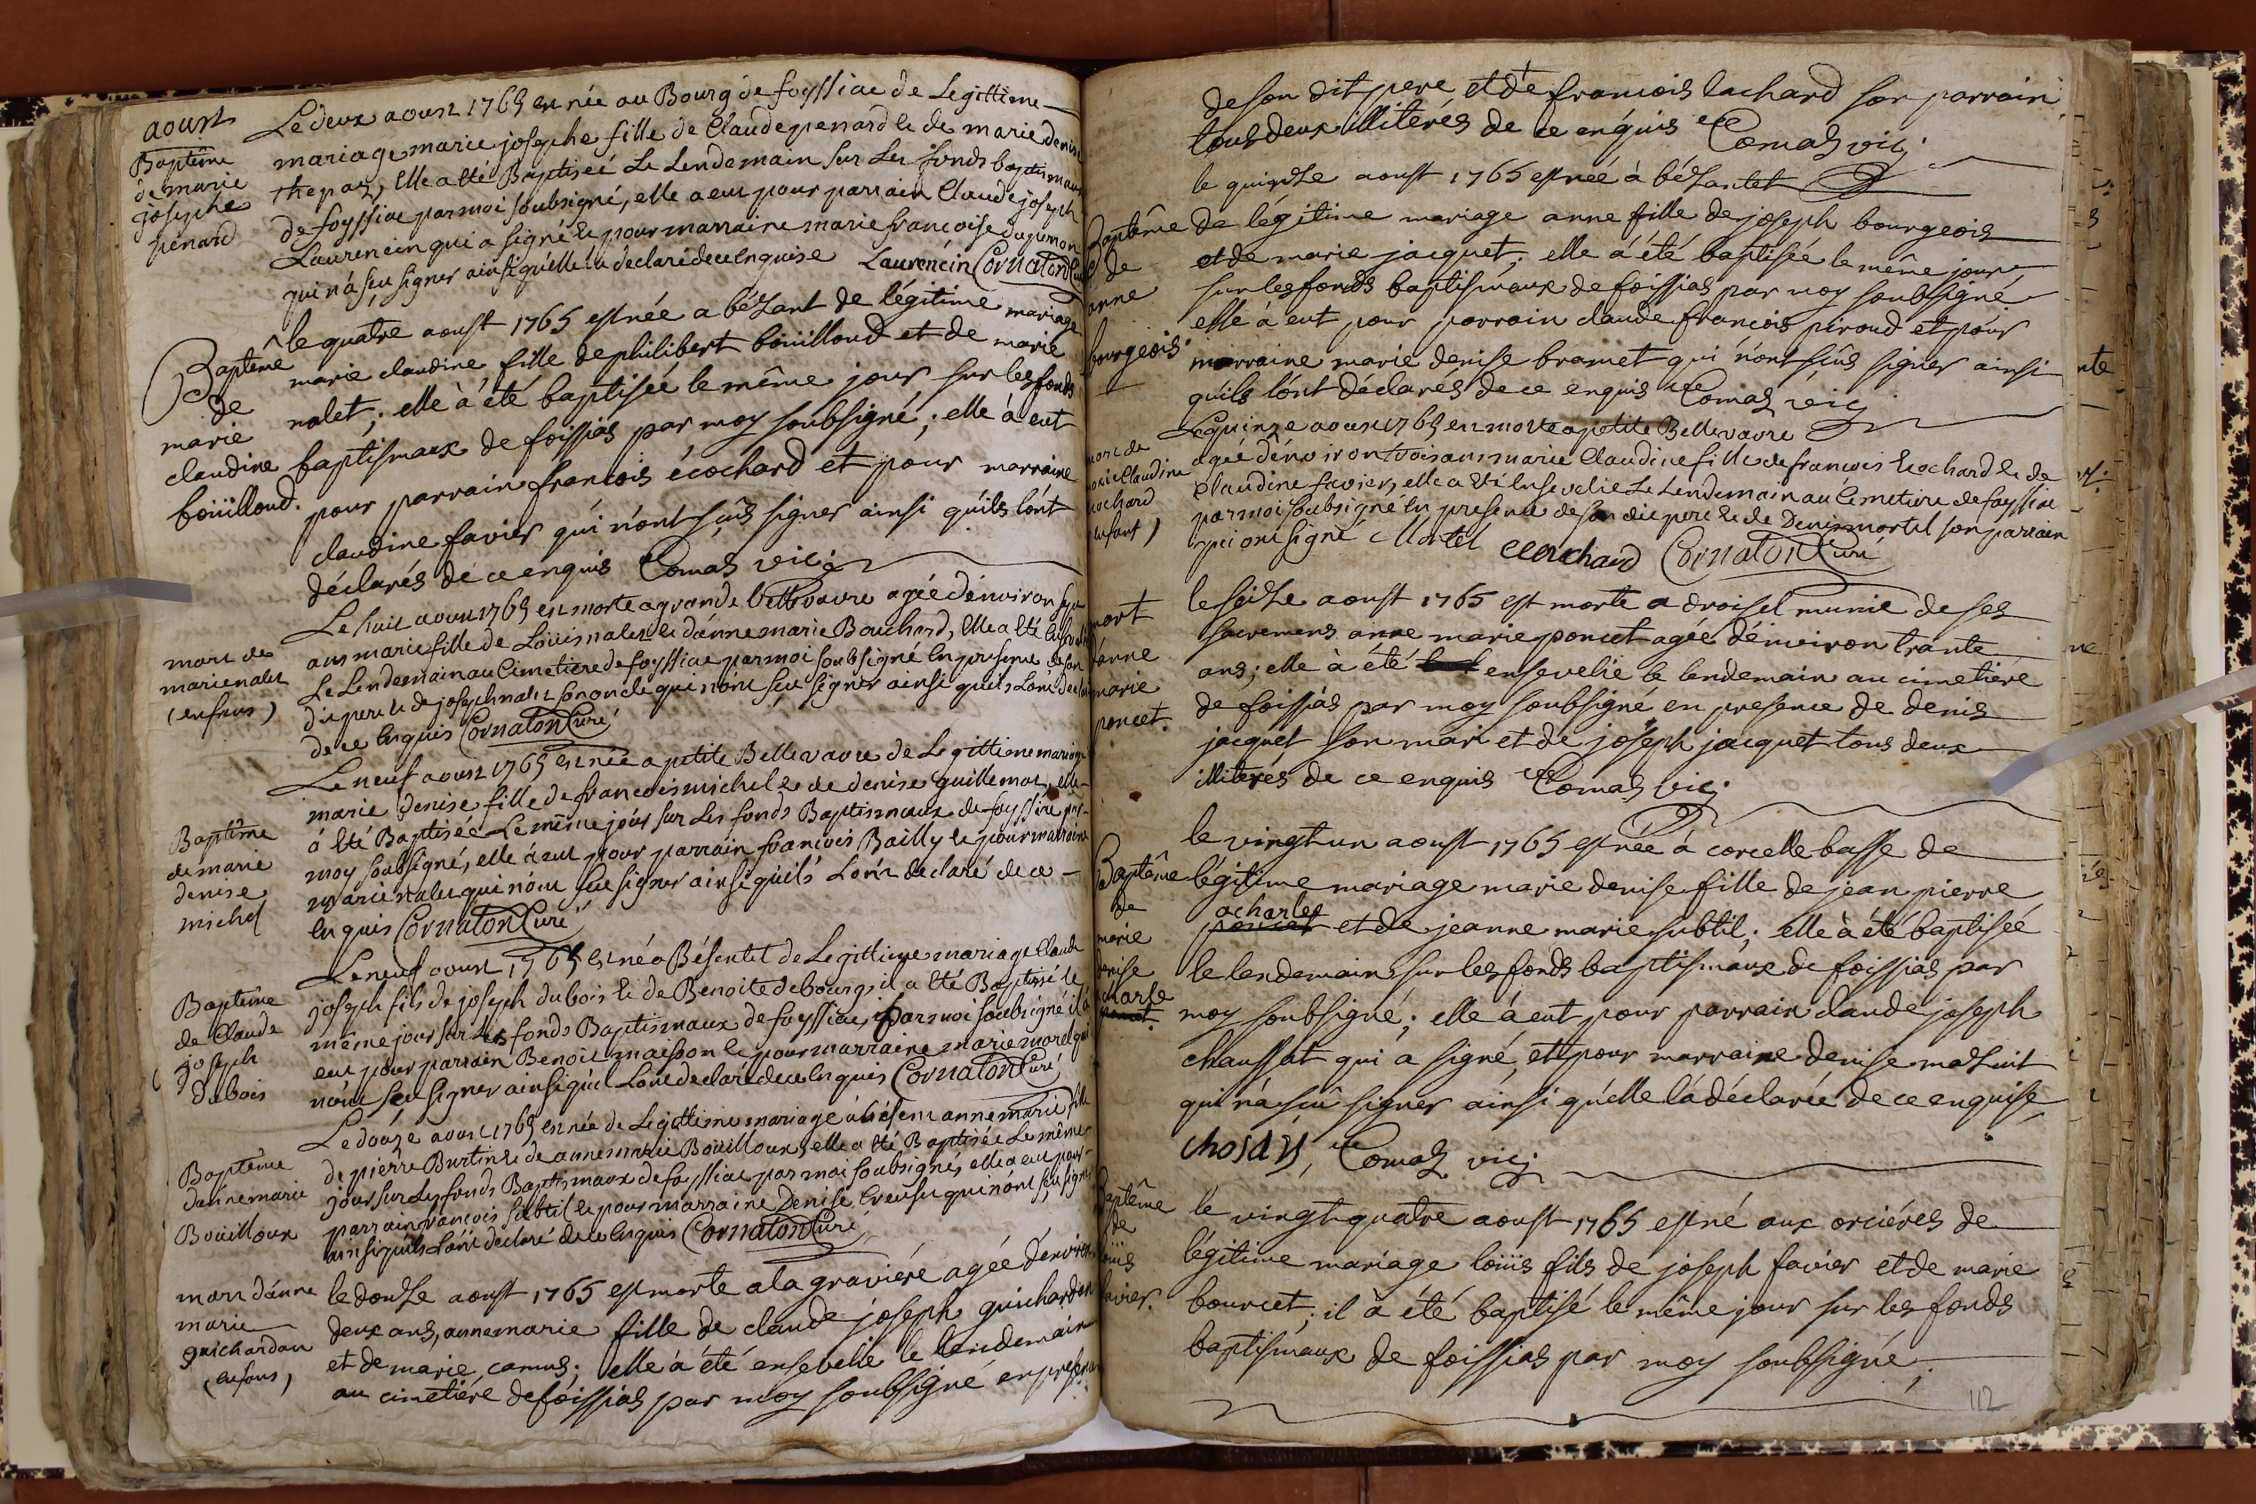 aoust
Baptême
de marie
josephe
penard
Le deux aoust 1765 est née au Bourg de foyssiac de Legittime
mariage marie josephe fille de Claude penard et de marie denise
thepaz, elle a été Baptisée Le Lendemain sur Les fonds baptismaux
de foyssiac par moi soubsigné, elle a eut pour parrain Claude joseph
Laurencin qui a signé et pour marraine marie francoise dupemon
qui n'a sçu signer ainsi qu'elle l'a declaré de ce enquise Laurencin Cornaton Curé
Baptême
de
marie
claudine
boüilloud.
le quatre aoust 1765 est née a bézant de légitime mariage
marie claudine fille de philibert boüilloud et de marie
nalet; elle à été baptisée le même jour sur les fonds
baptismaux de foissias par moy soubsigné; elle à eut
pour parrain francois écochard et pour marraine
claudine favier qui n'ont sçûs signer ainsi qu'ils l'ont
déclarés de ce enquis Comas vic:
mort de
marie nalet
(enfans)
Le huit aoust 1765 est morte a grande Bellevavre agée d'environ sept
ans marie fille de Loüis nalet et d'anne marie Bouchard, elle a été Ensevelie
Le Lendemain au Cimetiere de foyssiac par moi soubsigné En presence de son
dit pere et de joseph nalet son oncle qui n'ont sçu signer ainsi qu'ils L'ont declaré
de ce Enquis Cornaton Curé
Baptême
de marie
denise
michel
Le neuf aoust 1765 est née a petite Bellevavre de Legittime mariage
marie denise fille de francois michel et de denise guillemot, elle
á été Baptisée Le même jour sur Les fonds Baptismaux de foyssiac par
moy soubsigné, elle á eut pour parrain francois Bailly et pour marraine
marie nalet qui n'ont sçu signer ainsi qu'ils L'ont declaré de ce
Enquis Cornaton Curé
Baptême
de Claude
joseph
dubois
Le neuf aoust 1765 est né a Bésentet de Legittime mariage Claude
joseph fils de joseph dubois et de Benoite debourg, il a été Baptisé le
même jour sur Les fonds Baptismaux de foyssiac, par moi soubsigné il a
eut pour parrain Benoit maisson et pour marraine marie morel qui
n'ont sçu signer ainsi qu'il L'ont declaré de ce Enquis Cornaton Curé
Baptême
d'anne marie
Bouilloux
Le douze aoust 1765 est née de Legittime mariage á bésent anne marie fille
de pierre Burtin et de anne marie Bouilloux, elle a été Baptisée Le même
jour sur Les fonds Baptismaux de foyssiac par moi soubsigné, elle a eut pour
parrain francois subtil et pour marraine Denise Creuse qui n'ont sçu signer
ainsi qu'ils L'ont declaré de ce Enquis Cornaton Curé
mort d'anne
marie
guichardan
(enfans)
le douze aoust 1765 est morte a la graviére agée d'environ
deux ans, anne marie fille de claude joseph guichardan
et de marie camus; elle à été ensevelie le lendemain
au cimetiére de foissias par moy soubsigné en presence
de son dit pere et de francois lachard son parrain
tous deux illiterés de ce enquis Comas vic:
Baptême
de
anne
bourgeois
le quinze aoust 1765 est née à bézantet
de légitime mariage anne fille de joseph bourgeois
et de marie jacquet; elle à été baptisée le même jour
sur les fonds baptismaux de foissias par moy soubsigné
elle à eut pour parrain claude francois piroud et pour
marraine marie denise bramet qui n'ont sçûs signer ainsi
qu'ils l'ont déclarés de ce enquis Comas vic:
mort de
marie Claudine
Ecochard
(enfant)
Le quinze aoust 1765 est morte a petite Bellevavre
agée d'environ trois ans marie Claudine fille de francois Ecochard et de
Claudine favier, elle a été Ensevelie Le Lendemain au Cimetiere de foyssiac
par moi soubsigné En presence de son dit pere et de Denis mortel son parrain
qui ont signé Mortel Ecochard Cornaton Curé
mort
d'anne
marie
poncet.
le seize aoust 1765 est morte a droisel munie de ses
sacremens anne marie poncet agée d'environ trante
ans; elle à été ensevelie le lendemain au cimetiére
de foissias par moy soubsigné en presence de denis
jacquet son mari et de joseph jacquet tous deux
illiterés de ce enquis Comas vic:
Baptême
de
marie
denise
acharle
poncet.
le vingt un aoust 1765 est née à corcelle basse de
légitime mariage marie denise fille de jean pierre
acharles
poncet et de jeanne marie subtil; elle à été baptisée
le lendemain sur les fonds baptismaux de foissias par
moy soubsigné; elle à eut pour parrain claude joseph
chaussat qui a signé, et pour marraine denise mazuit
qui n'a sçû signer ainsi qu'elle l'a déclarée de ce enquise
Comas vic:
Baptême
de
loüis
favier.
le vingt quatre aoust 1765 est né aux orciéres de
légitime mariage loüis fils de joseph favier et de marie
bourcet; il à été baptisé le même jour sur les fonds
baptismaux de foissias par moy soubsigné;
112